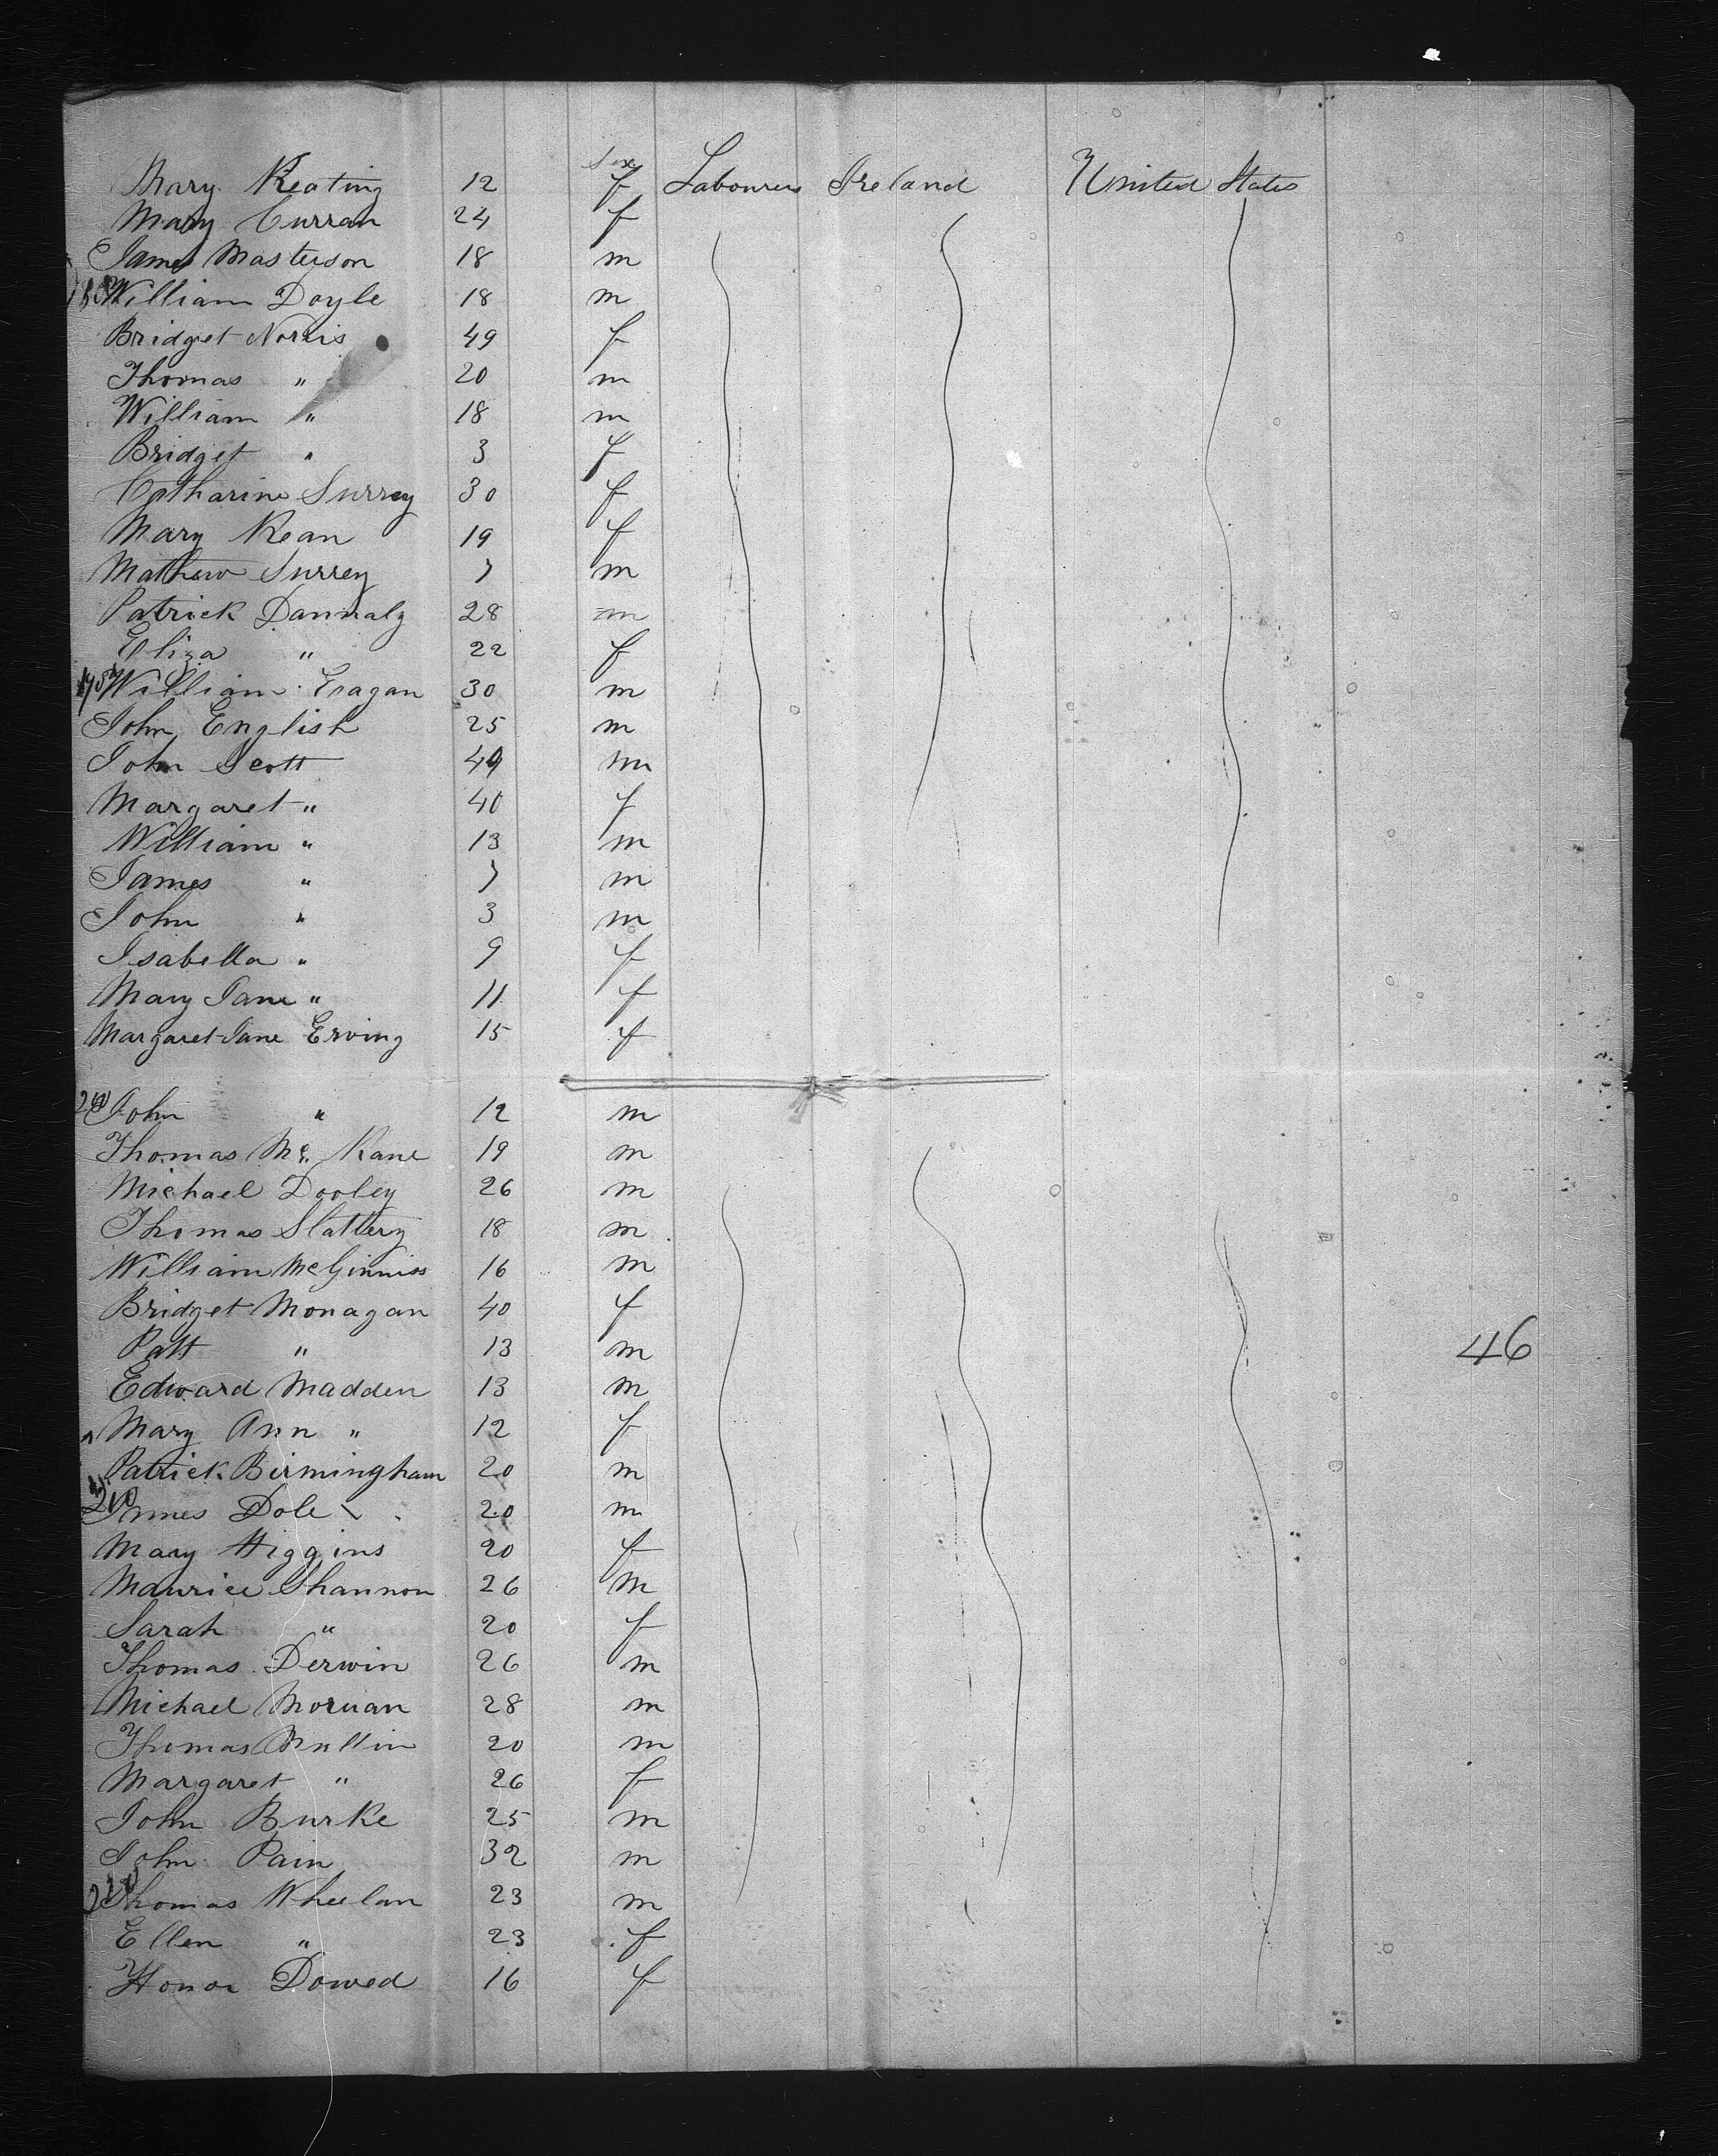 Sex
Mary Keating 12 f Labourers Ireland United States
Mary Curran 24 f
James Masterson 18 m
180 William Doyle 18 m
Bridget Norris 49 f
Thomas " 20 m
William " 18 m
Bridget " 3 f
Catharine Surrey 30 f
Mary Kean 19 f
Mathew Surrey 7 m
Patrick Dannaly 28 m
Eliza " 22 f
190 William Eagan 30 m
John English 25 m
John Scott 49 m
Margaret " 40 f
William " 13 m
James " 7 m
John " 3 m
Isabella " 9 f
Mary Jane " 11 f
Margaret Jane Erving 15 f
200 John " 12 m
Thomas Mc Kane 19 m
Michael Dooley 26 m
Thomas Slattery 18 m
William McGinniss 16 m
Bridget Monagan 40 f
Patt " 13 m 46
Edward Madden 13 m
Mary Ann " 12 f
Patrick Birmingham 20 m
210 James Dole 20 m
Mary Higgins 20 f
Maurice Shannon 26 m
Sarah " 20 f
Thomas Derwin 26 m
Michael 28 m
Thomas Mullin 20 m
Margaret " 26 f
John Burke 25 m
John Pain 32 m
220 Thomas Wheelan 23 m
Ellen " 23 f
Honor Dowed 16 f